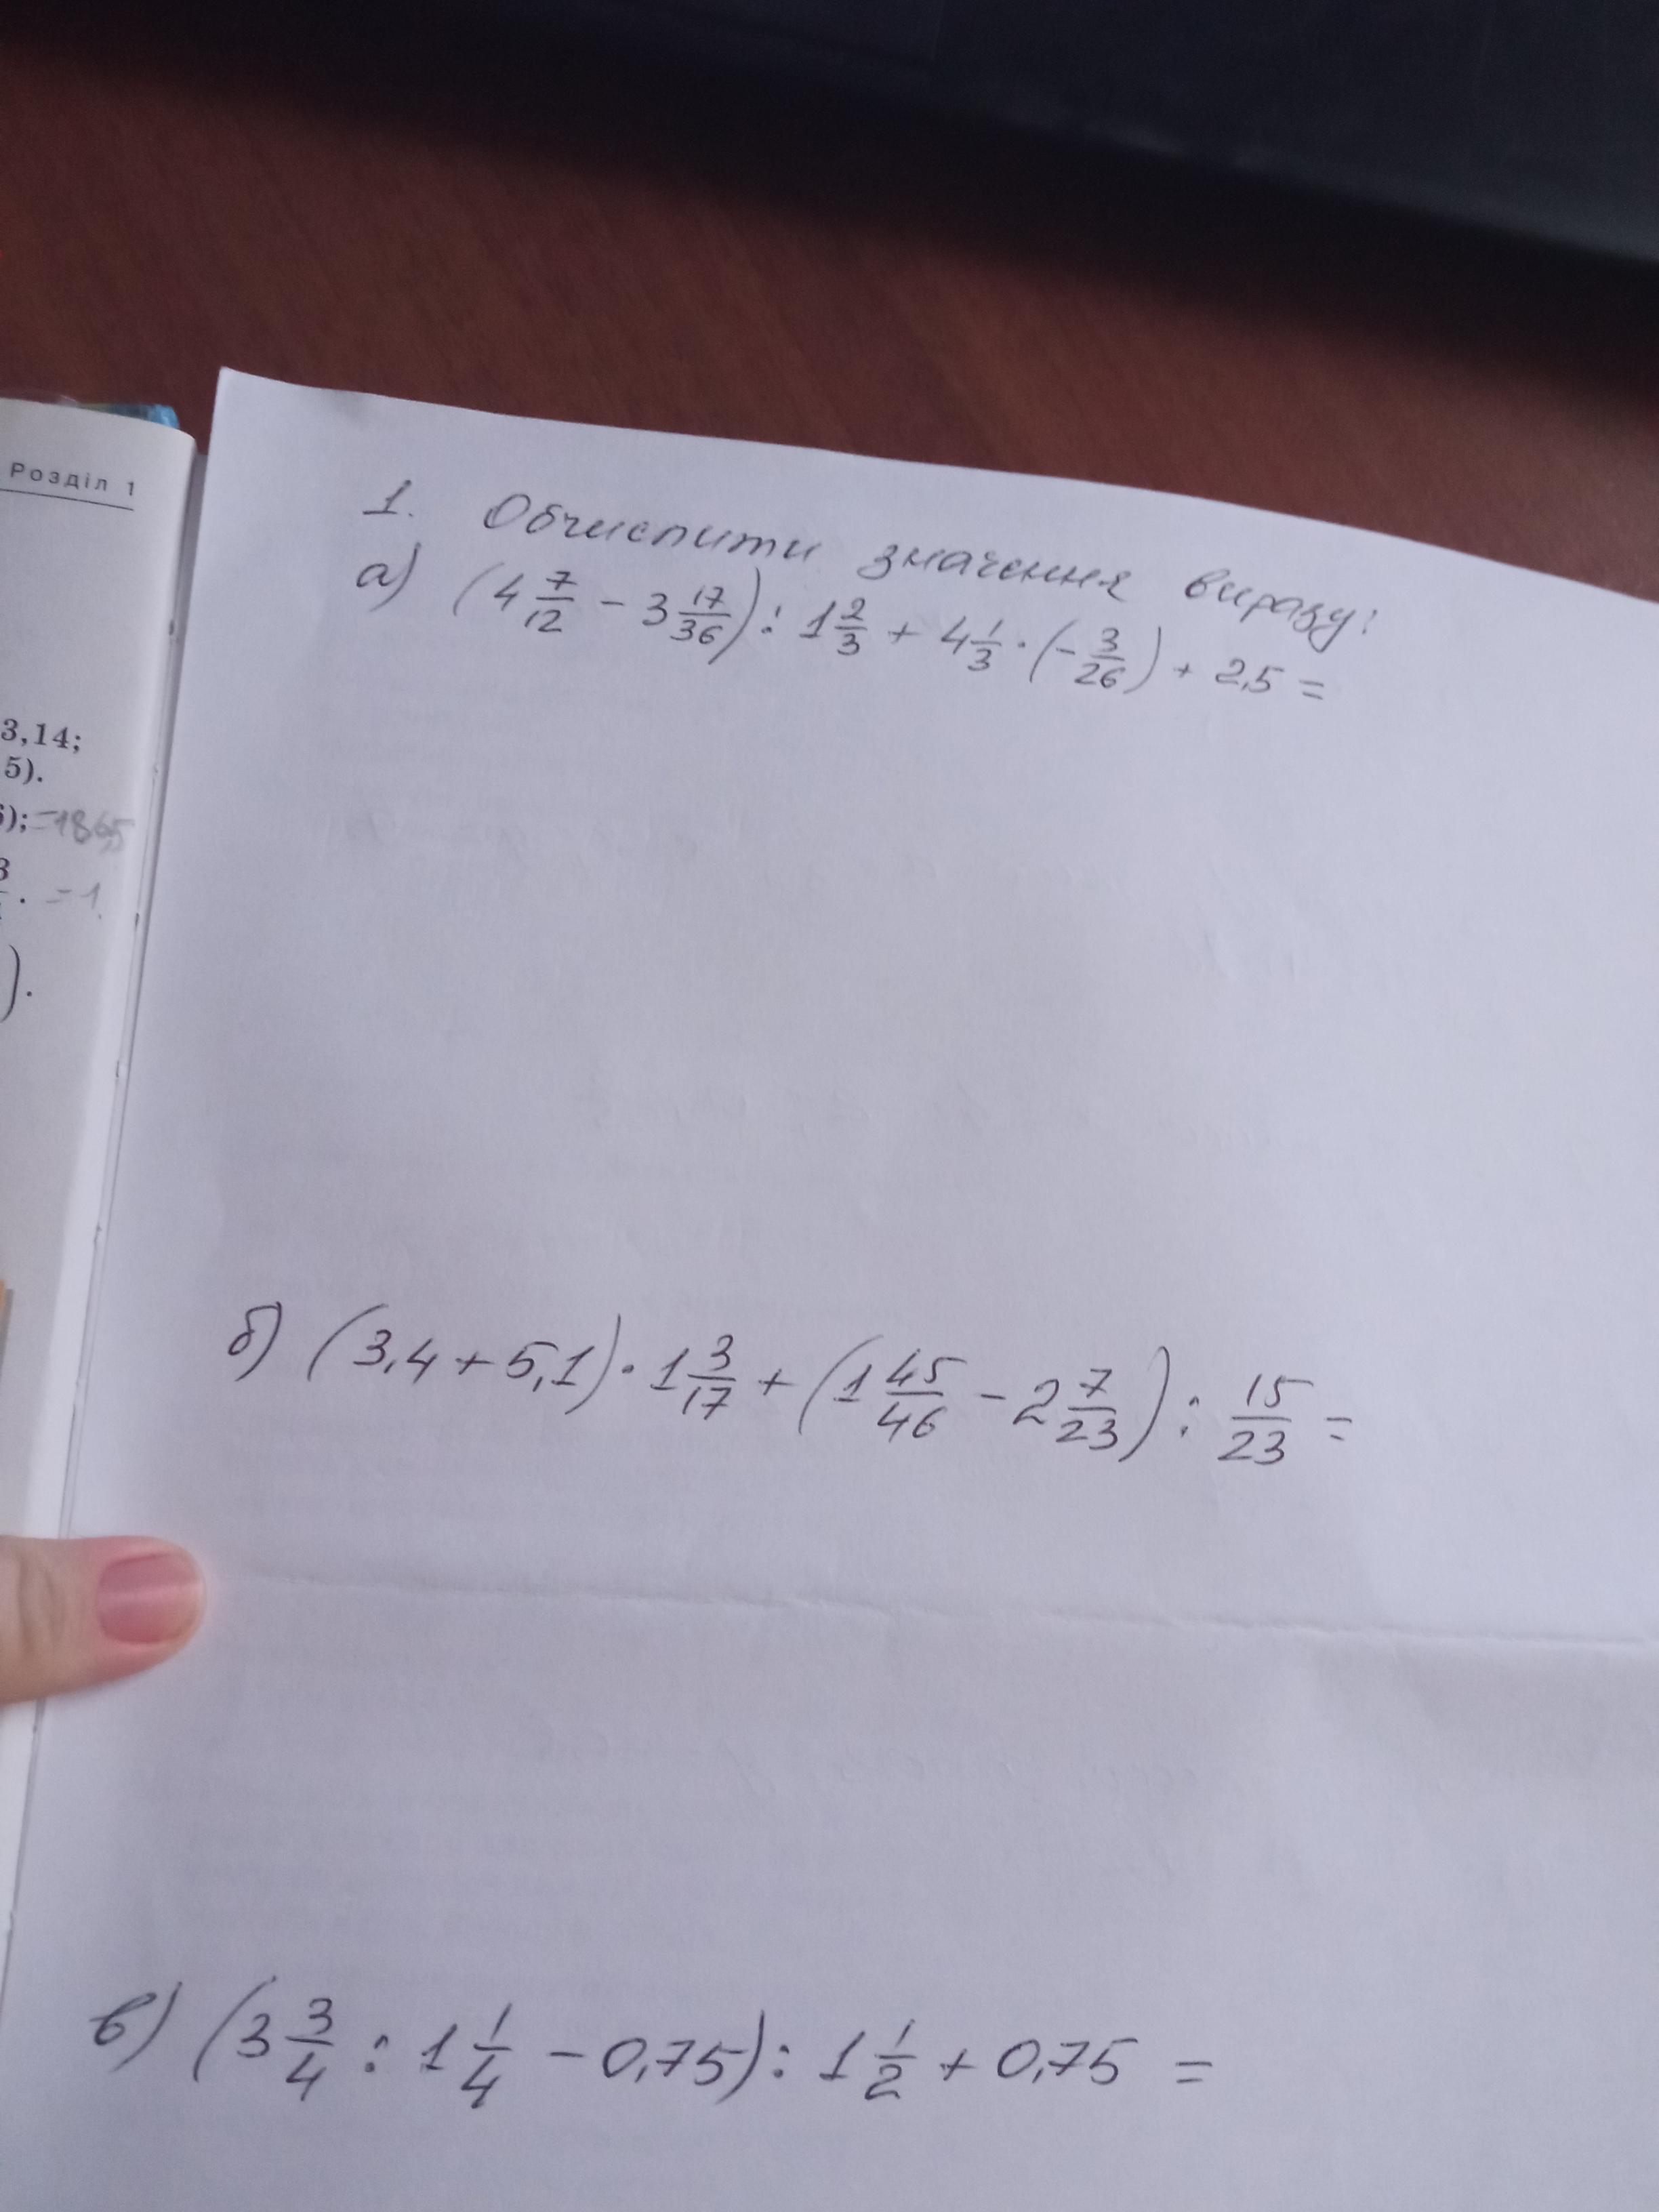 Розділ 1
3,14;
5).
); =186,5
3
. =1.
).
1. Обчислити значення виразу:
а) (4 7/12 - 3 17/36) : 1 2/3 + 4 1/3 · (- 3/26) + 2,5 =
б) (3,4 + 5,1) · 1 3/17 + (1 45/46 - 2 7/23) : 15/23 =
в) (3 3/4 : 1 1/4 - 0,75) : 1 1/2 + 0,75 =